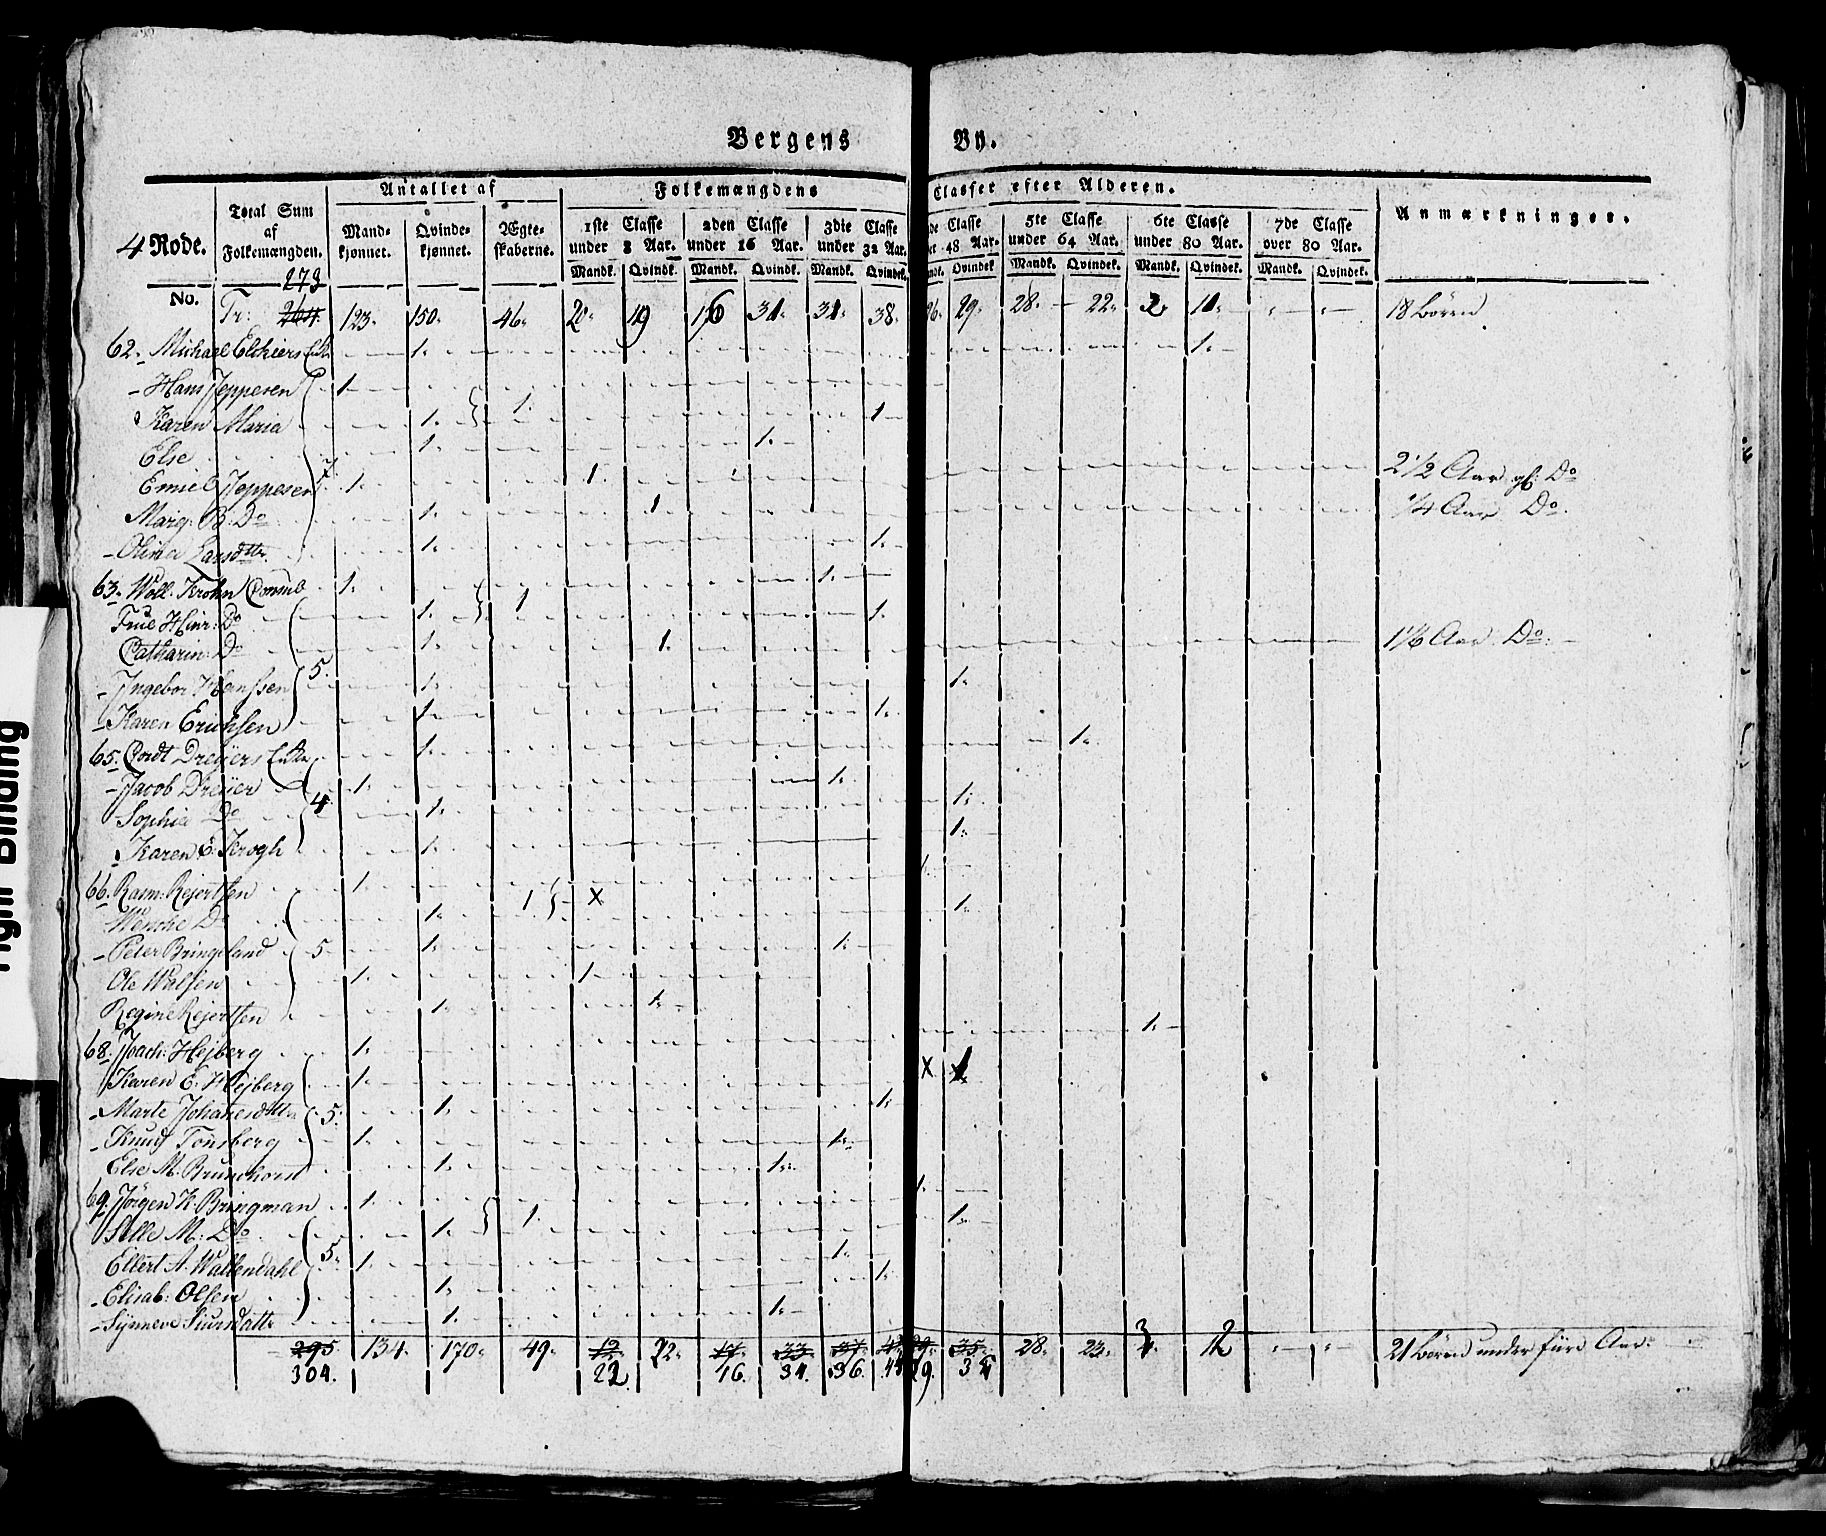 Bergens By.
4 Rode. Total Sum af Folkemængden. Antallet af Mandkjønnet. Qvindekjønnet. Ægteskaberne. Folkemængdens Classer efter Alderen. Anmærkninger.
1ste Classe under 8 Aar. 2den Classe under 16 Aar. 3die Classe under 32 Aar. de Classe 48 Aar. 5te Classe under 64 Aar. 6te Classe under 80 Aar. 7de Classe over 80 Aar.
Mandk. Qvindk. Mandk. Qvindk. Mandk. Qvindek. Qvindek. Mandk. Qvindek. Mandk. Qvindek. Mandk. Qvindek.
273
No. Tr: 264 123. 150. 46. 20. 19 16 31. 31. 38. 26. 29. 28. 22. 2. 11. 18 Børn
62. Michael Elchiers 1. 1.
Hans Jeppesen 1
Karen Maria 1. 1. 1
Else 1. 1.
Emiel Jeppesen 7. 1. 1. 2 1/2 Aar Do
Marg: B: Do 1. 1. 1/4 Aar Do.
Olina Larsdttr. 1. 1.
63. Woll. Krohn 1. 1.
Frue Hinr: Do 1. 1 1.
Catharin: Do 1. 1. 1 1/6 Aar Do.
Ingebor Hanssen 5. 1. 1.
Karen Erichsen 1. 1.
65. Cordt Dreÿers Enke 1. 1.
Jacob Dreÿer 1. 1.
Sophia Do 4. 1. 1.
Karen E: Krogh 1. 1.
66. Rasm: Rejertsen 1. 1 x 1.
Wenche Do 1. 1.
Peter Bringeland 5 1. 1.
Ole Wolsen 1. 1.
Regine Rejertsen 1. 1.
68. Joach: Hejberg 1. 1.
Karen E. Hejberg 1. x 1
Marte Johanesdttr 5. 1. 1.
Knud Tonsberg 1. 1.
Else M. Brunchorst 1. 1.
69. Jørgen K. Bringman 1. 1.
Sille M: Do 1. 1. 1.
Eilert A. Wallendahl 5. 1. 1.
Elisab: Olsen 1. 1.
Synneve Siursdatter 1. 1.
295 134. 170. 49. 19 22. 17. 33. 37. 35. 28. 23. 3 12 21 Børn under fire Aar.
304. 22 16. 34. 36. 29.